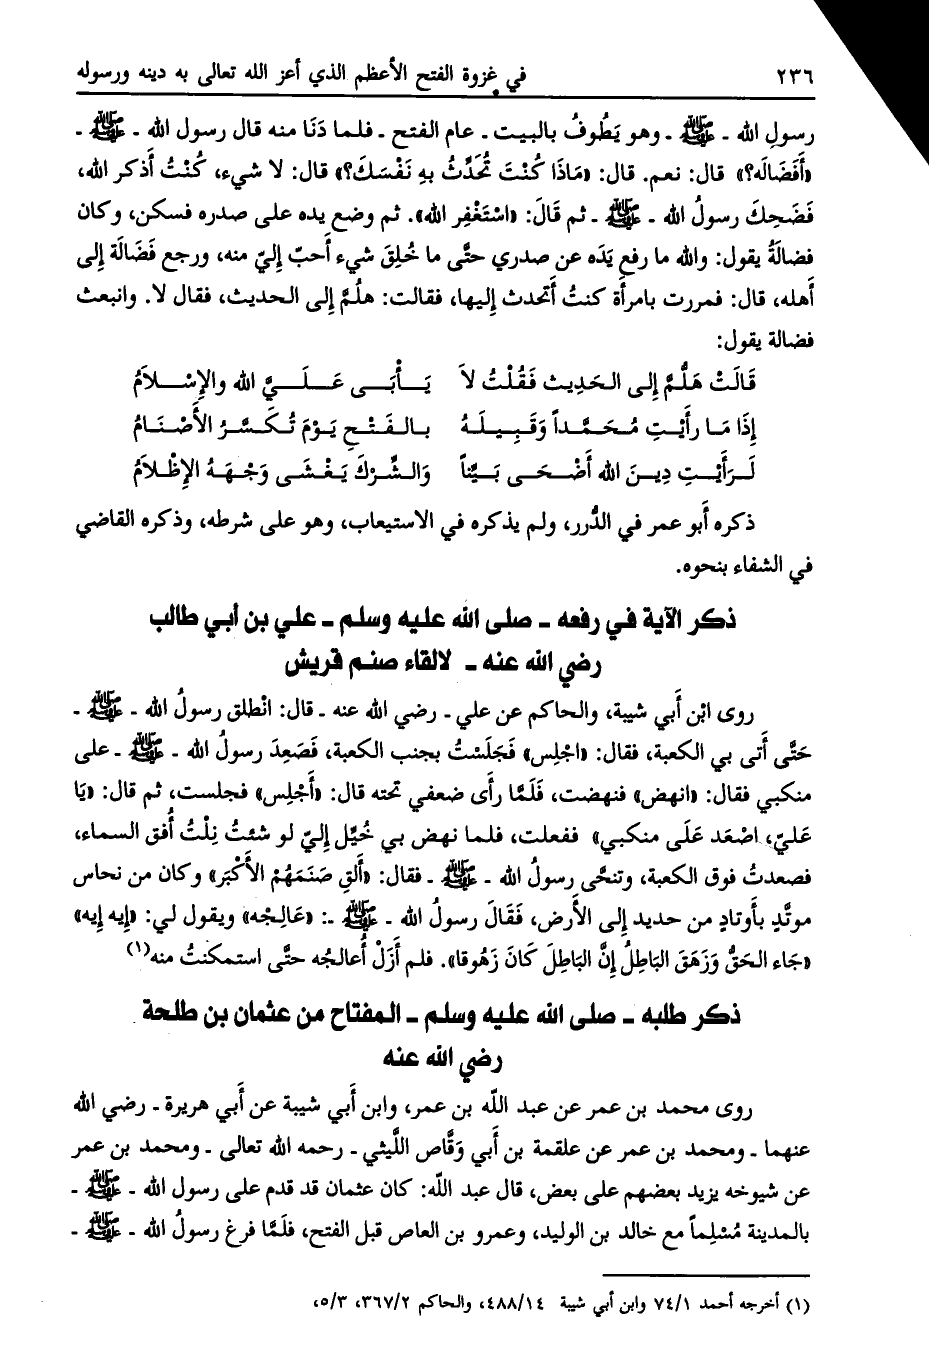 ٢٣٦ في غزوة الفتح الأعظم الذي أعز الله تعالى به دينه ورسوله
رسولِ الله ـ ﷺ ـ وهو يَطُوفُ بالبيت ـ عام الفتح ـ فلما دَنَا منه قال رسول الله ـ ﷺ ـ
«أَفَضَاله؟» قال: نعم. قال: «مَاذَا كُنْتَ تُحَدِّثُ بِهِ نَفْسَكَ؟» قال: لا شيء، كُنْتُ أذكر الله،
فَضَحِكَ رسولُ الله ـ ﷺ ـ ثم قَالَ: «اسْتَغْفِر الله». ثم وضع يده على صدره فسكن، وكان
فضالَةُ يقول: والله ما رفع يَدَه عن صدري حتَّى ما خُلِقَ شيء أحبّ إليّ منه، ورجع فَضَالَة إلى
أهله، قال: فمررت بامرأة كنتُ أتحدث إليها، فقالت: هلُمَّ إلى الحديث، فقال لا. وانبعث
فضالة يقول:
قَالَتْ هَلُمَّ إلى الحَدِيث فَقُلْتُ لاَ يَـأْبَـى عَـلَـيَّ الله والإِسْـلاَمُ
إِذَا مَـا رأَيْـتِ مُـحَـمَّـداً وَقَـبِـيـلَـهُ بِـالـفَـتْـحِ يَـوْمَ تُـكَـسَّـرُ الأَصْـنَـامُ
لَـرَأَيْـتِ دِيـنَ الله أَضْـحَـى بَـيِّـناً وَالـشِّـرْكَ يَـغْـشَـى وَجْـهَـهُ الإِظْـلاَمُ
ذكره أبو عمر في الدُّرر، ولم يذكره في الاستيعاب، وهو على شرطه، وذكره القاضي
في الشفاء بنحوه.
ذكر الآية في رفعه ـ صلى الله عليه وسلم ـ علي بن أبي طالب
رضي الله عنه ـ لالقاء صنم قريش
روى ابْن أبي شيبة، والحاكم عن علي ـ رضي الله عنه ـ قال: انْطلق رسولُ الله ـ ﷺ ـ
حَتَّى أتى بي الكعبة، فقال: «اجْلِس» فَجَلَسْتُ بجنب الكعبة، فَصَعِدَ رسولُ الله ـ ﷺ ـ على
منكبي فقال: «انهض» فنهضت، فَلَمَّا رأى ضعفي تحته قال: «أجْلِس» فجلست، ثم قال: «يَا
عَليّ، اصْعَد عَلَى منكبي» ففعلت، فلما نهض بي خُيِّل إليّ لو شئتُ نِلْتُ أُفق السماء،
فصعدتُ فوق الكعبة، وتنحَّى رسولُ الله ـ ﷺ ـ فقال: «أَلقِ صَنَمَهُمْ الأَكْبَر» وكان من نحاس
موتَّدٍ بأوتادٍ من حديد إلى الأرض، فَقَالَ رسولُ الله ـ ﷺ ـ: «عَالِجْه» ويقول لي: «إيه إيه»
«جَاء الحَقُّ وَزَهَقَ البَاطِلُ إنَّ البَاطِلَ كَانَ زَهُوقا». فلم أزَلْ أُعالجُه حتَّى استمكنتُ منه(١)
ذكر طلبه ـ صلى الله عليه وسلم ـ المفتاح من عثمان بن طلحة
رضي الله عنه
روى محمد بن عمر عن عبد اللّه بن عمر، وابن أبي شيبة عن أبي هريرة ـ رضي الله
عنهما ـ ومحمد بن عمر عن علقمة بن أبي وَقَّاص اللَّيثي ـ رحمه الله تعالى ـ ومحمد بن عمر
عن شيوخه يزيد بعضهم على بعض، قال عبد اللّه: كان عثمان قد قدم على رسول الله ـ ﷺ ـ
بالمدينة مُسْلِماً مع خالد بن الوليد، وعمرو بن العاص قبل الفتح، فلَمَّا فرغ رسولُ الله ـ ﷺ ـ
(١) أخرجه أحمد ٧٤/١ وابن أبي شيبة ٤٨٨/١٤، والحاكم ٣٦٧/٢، ٥/٣،